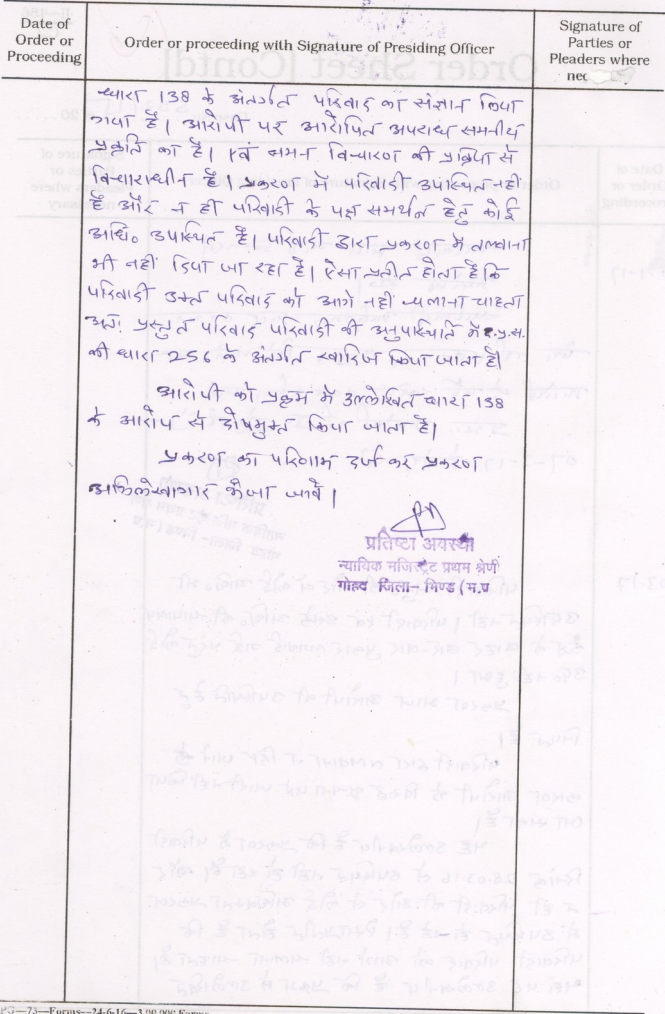 Date of
Order or
Proceeding
Order or proceeding with Signature of Presiding Officer
Signature of
Parties or
Pleaders where
nec
धारा 138 के अंतर्गत परिवाद का संज्ञान लिया
गया है। आरोपी पर आरोपित अपराध समनीय
प्रकृति का है। एवं समन विचारण की प्रक्रिया से
विचाराधीन है। प्रकरण में परिवादी उपस्थित नहीं
है और न ही परिवादी के पक्ष समर्थन हेतु कोई
अधि० उपस्थित है। परिवादी द्वारा प्रकरण में तलवाना
भी नहीं दिया जा रहा है। ऐसा प्रतीत होता है कि
परिवादी उक्त परिवाद को आगे नहीं चलाना चाहता
अतः प्रस्तुत परिवाद परिवादी की अनुपस्थिति में द.प्र.स.
की धारा 256 के अंतर्गत खारिज किया जाता है।
आरोपी को प्रक्रम में उल्लेखित धारा 138
के आरोप से दोषमुक्त किया जाता है।
प्रकरण का परिणाम दर्ज कर प्रकरण
अभिलेखागार भेजा जावे।
प्रतिष्टा अवस्थी
न्यायिक मजिस्ट्रेट प्रथम श्रेणी
गोहद जिला- भिण्ड (म.प्र